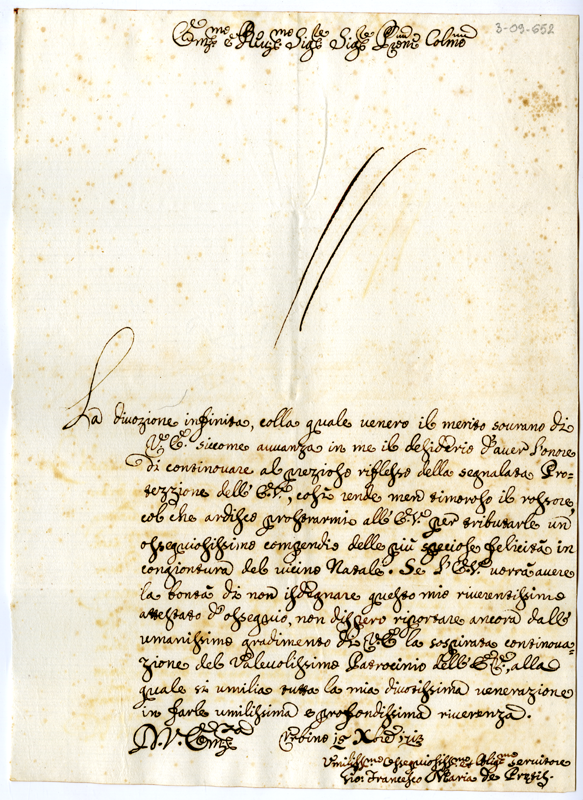 3-09-652
Em.mo e Rev.mo Sig.re Sig.re P.ron Col.mo
La divozione infinita, colla quale venero il merito sovrano di
V.E. siccome avvanza in me il desiderio d'aver l'onore
di continovare al prezioso riflesso della segnalata Pro-
tezzione dell'E.V., così rende men timoroso il rossore,
col che ardisco prostrarmi all'E.V. per tributarle un
ossequiosissimo compendio delle più speciose felicità in
congiontura del vicino Natale. Se l'E.V. vorrà avere
la bontà di non isdegnare questo mio riverentissimo
attestato d'ossequio, non dispero riportare ancora dall'
umanissimo gradimento di V.E. la sospirata continova-
zione del Valevolissimo Patrocinio dell'E.V., alla
quale si umilia tutta la mia divotissima venerazione
in farle umilissima e profondissima riverenza.
D.V. Em.za Urbino 15 Xbre 1713
Umiliss.mo Ossequiosiss.mo Oblig.mo servitore
Gio: Francesco Maria de